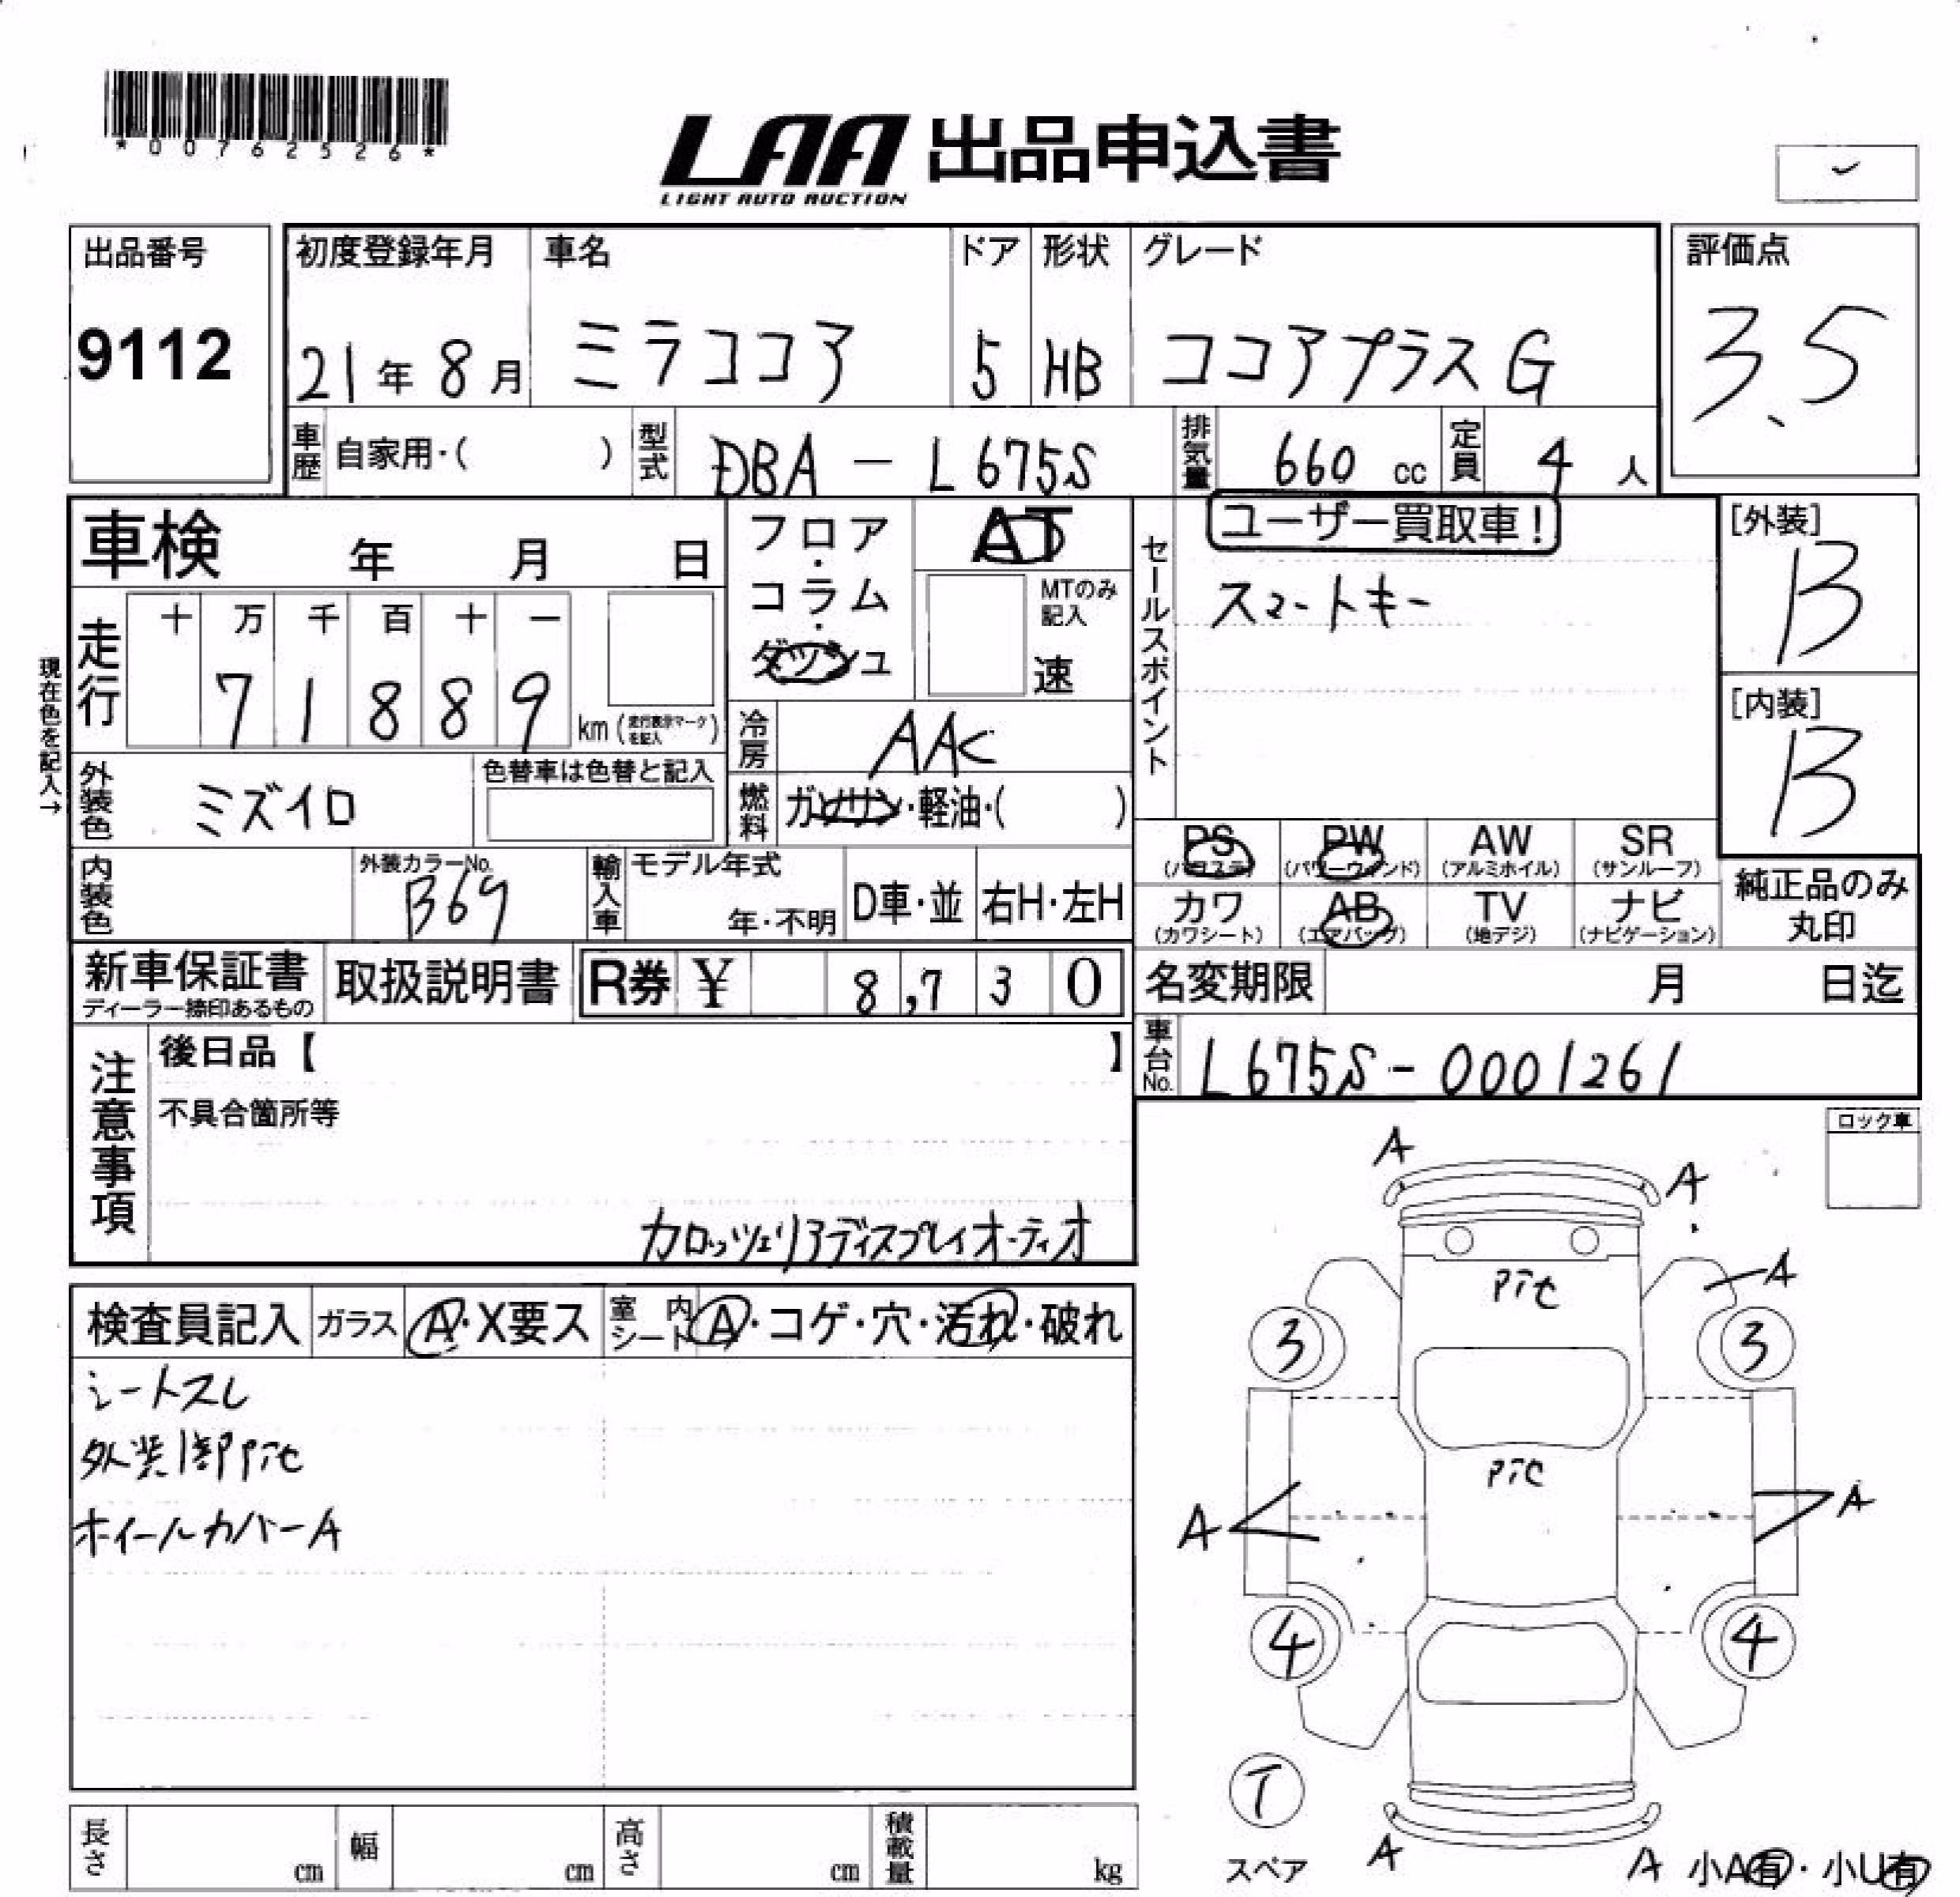 *00762526*
LAA 出品申込書
LIGHT AUTO AUCTION
出品番号
9112
初度登録年月
21年8月
車名
ミラココア
ドア
5
形状
HB
グレード
ココアプラスG
評価点
3.5
車歴 自家用・( )
型式 DBA-L675S
排気量 660 cc
定員 4 人
車検 年 月 日
フロア・コラム・ダッシュ
AT
MTのみ記入
速
走行 十 万 千 百 十 一
7 1 8 8 9
km (走行表示マークを記入)
現在色を記入→
外装色 ミズイロ
色替車は色替と記入
冷房 AAC
燃料 ガソリン・軽油・( )
内装色
外装カラーNo.
B69
輸入車 モデル年式
年・不明
D車・並
右H・左H
セールスポイント
ユーザー買取車!
スマートキー
[外装]
B
[内装]
B
PS (パワステ)
PW (パワーウィンド)
AW (アルミホイル)
SR (サンルーフ)
カワ (カワシート)
AB (エアバッグ)
TV (地デジ)
ナビ (ナビゲーション)
純正品のみ
丸印
新車保証書
ディーラー捺印あるもの
取扱説明書
R券 ¥ 8,730
名変期限 月 日迄
車台No. L675S-0001261
注意事項
後日品【 】
不具合箇所等
カロッツェリアディスプレイオーディオ
ロック車
検査員記入
ガラス A・X要ス
室内シート A・コゲ・穴・汚れ・破れ
シートスレ
外装1部PiC
ホイールカバーA
A
A
A
PiC
3
3
PiC
A
A
4
4
T
スペア
A
A
小A有・小U有
長さ cm
幅 cm
高さ cm
積載量 kg